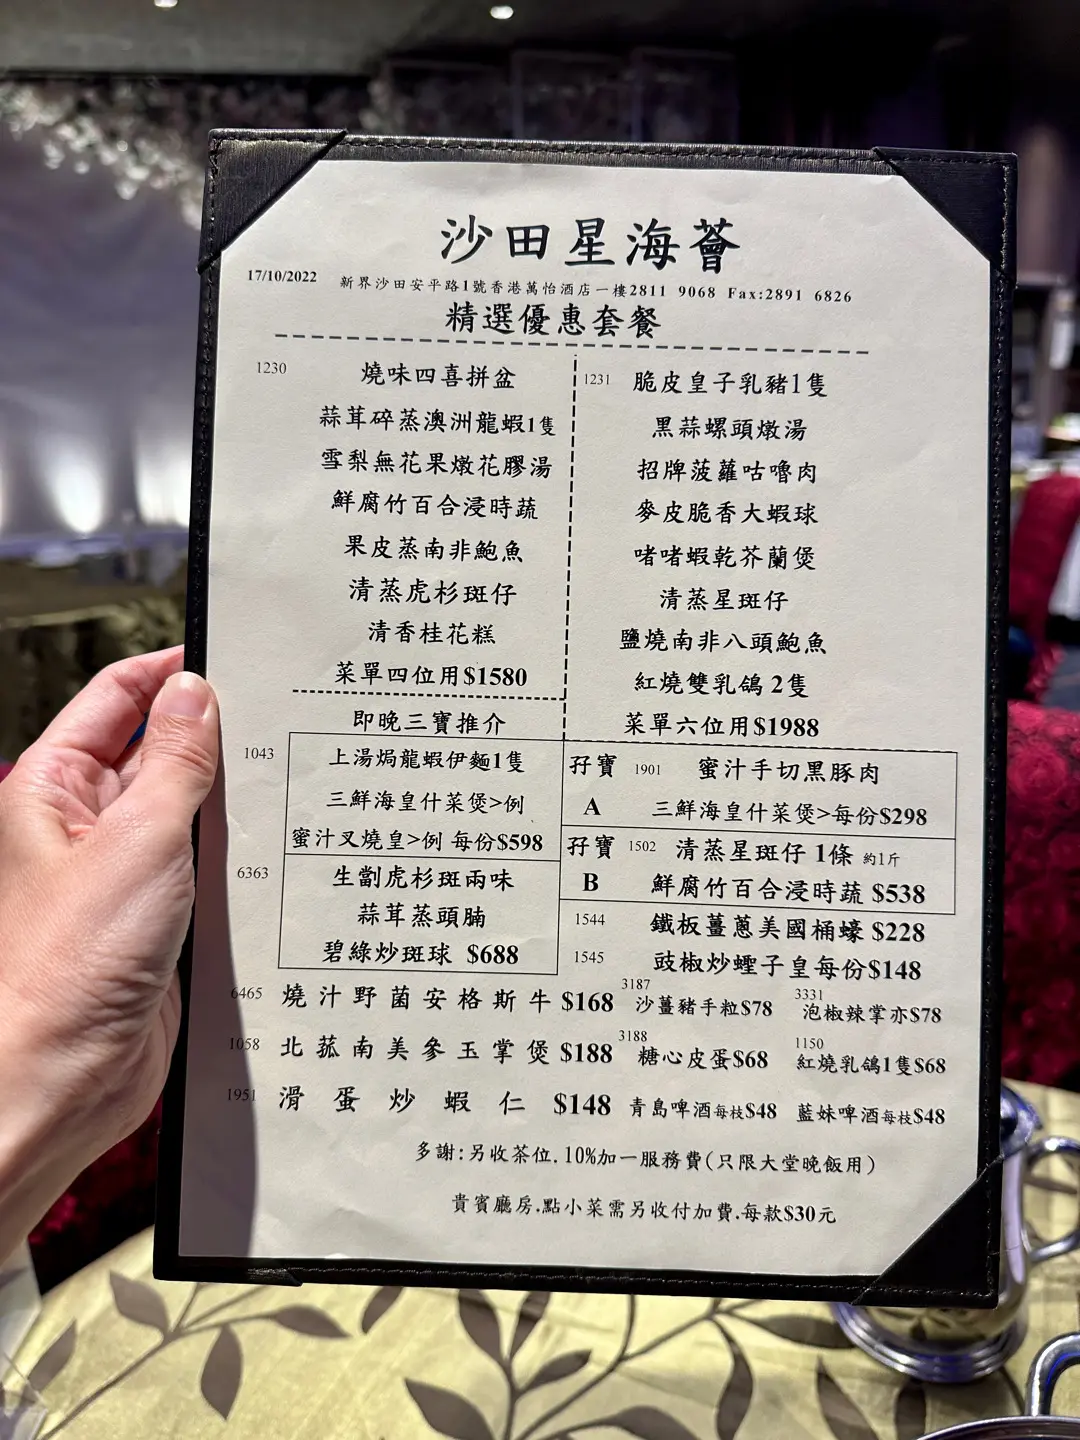 沙田星海薈
17/10/2022 新界沙田安平路1號香港萬怡酒店一樓2811 9068 Fax:2891 6826
精選優惠套餐
1230 燒味四喜拼盆
蒜茸碎蒸澳洲龍蝦1隻
雪梨無花果燉花膠湯
鮮腐竹百合浸時蔬
果皮蒸南非鮑魚
清蒸虎杉斑仔
清香桂花糕
菜單四位用$1580
1231 脆皮皇子乳豬1隻
黑蒜螺頭燉湯
招牌菠蘿咕嚕肉
麥皮脆香大蝦球
啫啫蝦乾芥蘭煲
清蒸星斑仔
鹽燒南非八頭鮑魚
紅燒雙乳鴿 2隻
菜單六位用$1988
即晚三寶推介
1043 上湯焗龍蝦伊麵1隻
三鮮海皇什菜煲>例
蜜汁叉燒皇>例 每份$598
6363 生劏虎杉斑兩味
蒜茸蒸頭腩
碧綠炒斑球 $688
孖寶 1901 蜜汁手切黑豚肉
A 三鮮海皇什菜煲>每份$298
孖寶 1502 清蒸星斑仔 1條 約1斤
B 鮮腐竹百合浸時蔬 $538
1544 鐵板薑蔥美國桶蠔 $228
1545 豉椒炒蟶子皇每份$148
6465 燒汁野菌安格斯牛 $168 3187 沙薑豬手粒$78 3331 泡椒辣掌亦$78
1058 北菰南美參玉掌煲 $188 3188 糖心皮蛋$68 1150 紅燒乳鴿1隻$68
1951 滑蛋炒蝦仁 $148 青島啤酒每枝$48 藍妹啤酒每枝$48
多謝:另收茶位.10%加一服務費(只限大堂晚飯用)
貴賓廳房.點小菜需另收付加費.每款$30元